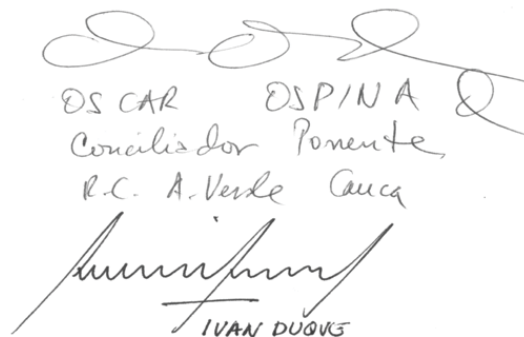 OSCAR OSPINA Q
Conciliador Ponente
R.C. A. Verde Cauca
IVAN DUQUE